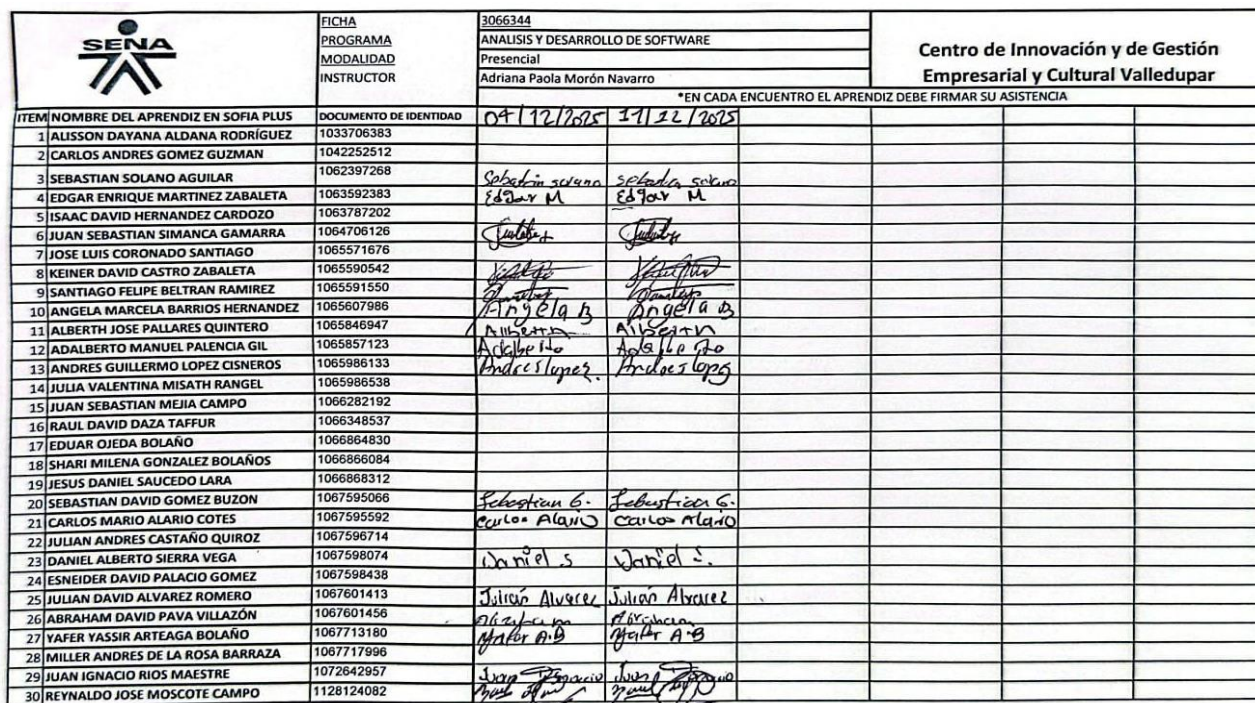 SENA
FICHA 3066344
PROGRAMA ANALISIS Y DESARROLLO DE SOFTWARE
MODALIDAD Presencial
INSTRUCTOR Adriana Paola Morón Navarro
Centro de Innovación y de Gestión
Empresarial y Cultural Valledupar
*EN CADA ENCUENTRO EL APRENDIZ DEBE FIRMAR SU ASISTENCIA
ITEM NOMBRE DEL APRENDIZ EN SOFIA PLUS DOCUMENTO DE IDENTIDAD 04/12/2025 11/12/2025
1 ALISSON DAYANA ALDANA RODRÍGUEZ 1033706383
2 CARLOS ANDRES GOMEZ GUZMAN 1042252512
3 SEBASTIAN SOLANO AGUILAR 1062397268 Sebastian solano sebastian solano
4 EDGAR ENRIQUE MARTINEZ ZABALETA 1063592383 Edgar M Edgar M
5 ISAAC DAVID HERNANDEZ CARDOZO 1063787202
6 JUAN SEBASTIAN SIMANCA GAMARRA 1064706126
7 JOSE LUIS CORONADO SANTIAGO 1065571676
8 KEINER DAVID CASTRO ZABALETA 1065590542
9 SANTIAGO FELIPE BELTRAN RAMIREZ 1065591550
10 ANGELA MARCELA BARRIOS HERNANDEZ 1065607986 Angela B Angela B
11 ALBERTH JOSE PALLARES QUINTERO 1065846947 Alberth Alberth
12 ADALBERTO MANUEL PALENCIA GIL 1065857123 Adalberto Adalberto
13 ANDRES GUILLERMO LOPEZ CISNEROS 1065986133 Andres lopez. Andres lopez
14 JULIA VALENTINA MISATH RANGEL 1065986538
15 JUAN SEBASTIAN MEJIA CAMPO 1066282192
16 RAUL DAVID DAZA TAFFUR 1066348537
17 EDUAR OJEDA BOLAÑO 1066864830
18 SHARI MILENA GONZALEZ BOLAÑOS 1066866084
19 JESUS DANIEL SAUCEDO LARA 1066868312
20 SEBASTIAN DAVID GOMEZ BUZON 1067595066 Sebastian G. Sebastian G.
21 CARLOS MARIO ALARIO COTES 1067595592 Carlos Alario Carlos Alario
22 JULIAN ANDRES CASTAÑO QUIROZ 1067596714
23 DANIEL ALBERTO SIERRA VEGA 1067598074 Daniel S Daniel S.
24 ESNEIDER DAVID PALACIO GOMEZ 1067598438
25 JULIAN DAVID ALVAREZ ROMERO 1067601413 Julián Alvarez Julián Alvarez
26 ABRAHAM DAVID PAVA VILLAZÓN 1067601456 Abraham Abraham
27 YAFER YASSIR ARTEAGA BOLAÑO 1067713180 Yafer A.B Yafer A.B
28 MILLER ANDRES DE LA ROSA BARRAZA 1067717996
29 JUAN IGNACIO RIOS MAESTRE 1072642957 Juan Ignacio Juan Ignacio
30 REYNALDO JOSE MOSCOTE CAMPO 1128124082